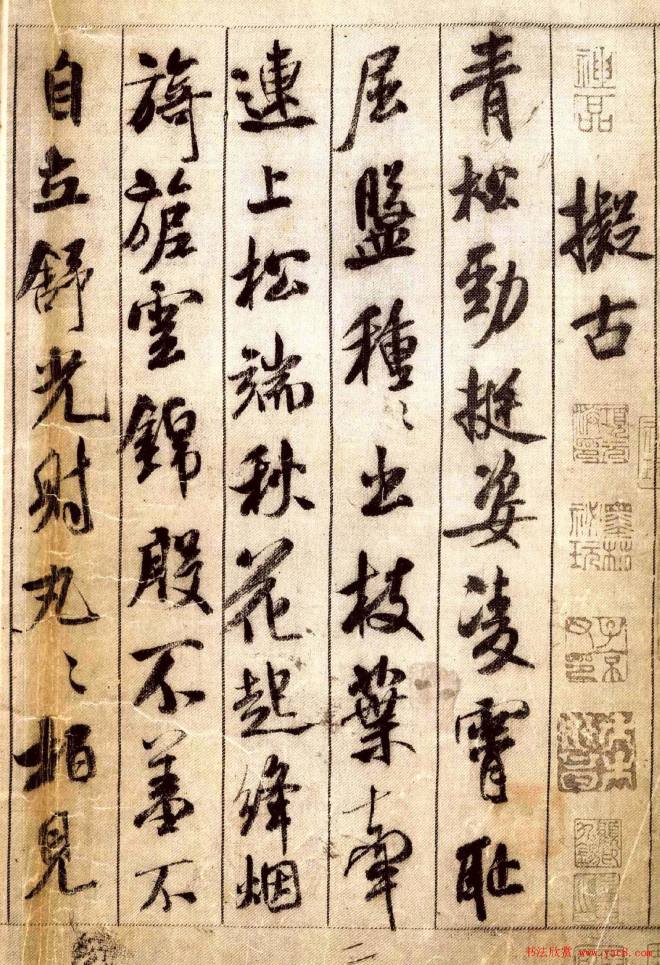 擬古
青松勁挺姿凌霄耻
屈盤種〻出枝葉牽
連上松端秋花起絳烟
旖旎雲錦殷不羞不
自立舒光射丸〻柏見
神品
墨林秘玩
子京父印
书法欣赏 www.yac8.com